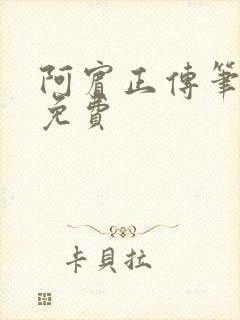 阿賓正傳筆
免費
卡貝拉